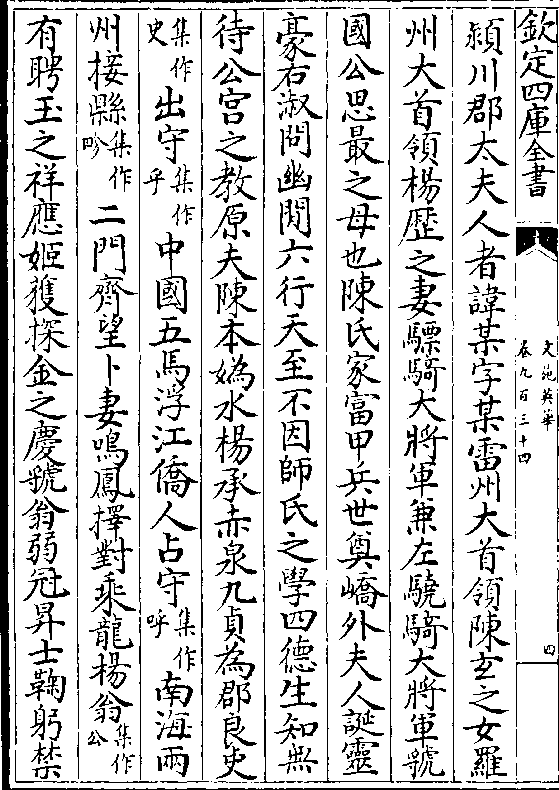 欽定四庫全書
文苑英華
卷九百三十四
四
潁川郡太夫人者諱某字某雷州大首領陳玄之女羅
州大首領楊歷之妻驃騎大將軍兼左驍騎大將軍虢
國公思最之母也陳氏家富甲兵世奠嶠外夫人誕靈
豪右淑問幽閒六行天至不因師氏之學四德生知無
待公宮之教原夫陳本媯水楊承赤泉九貞為郡良史
集作史出守集作乎中國五馬浮江僑人占守集作呼南海兩
州接縣集作畛二門齊望卜妻鳴鳳擇對乘龍楊翁集作公
有聘玉之祥應姬獲探金之慶虢翁弱冠昇士鞠躬禁